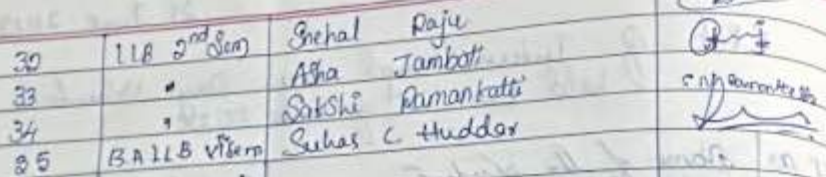 32 LLB 2nd Sem Snehal Raju
33 " Asha Jamboti
34 " Sakshi Ramankatti
35 BALLB VISem Suhas C. Huddar